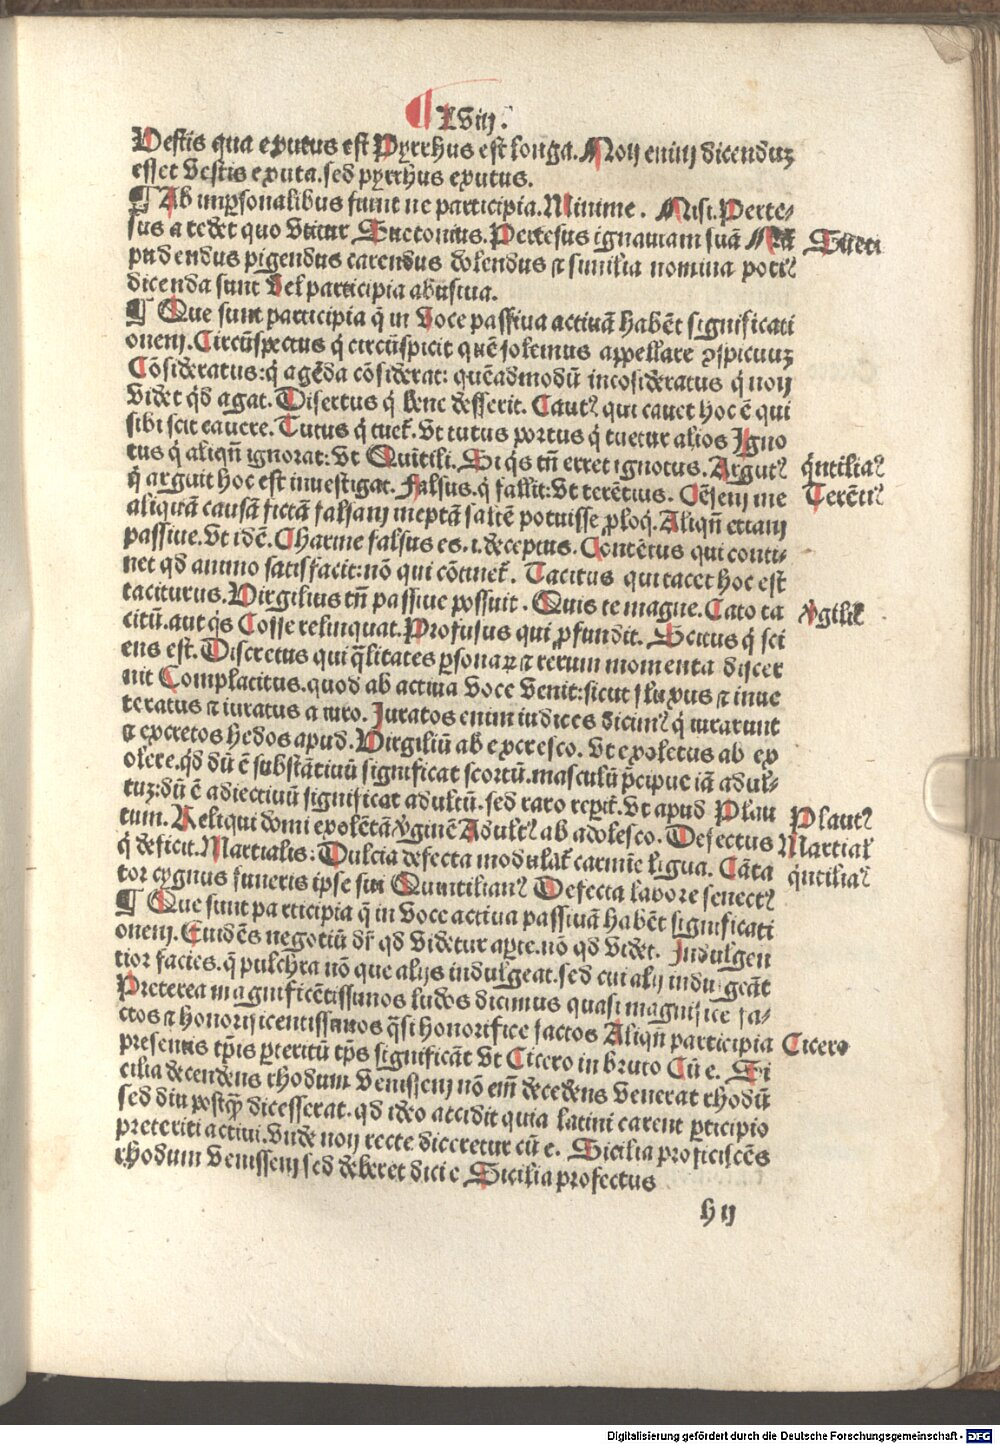 ¶ LViij.
Vestis qua exutus est Pyrrhus est longa. Non enim dicenduz
esset Vestis exuta. sed pyrrhus exutus.
¶ Ab impersonalibus fiunt ne participia. Minime. Nisi. Perte-
sus a tedet quo Vtitur Suetonius. Pertesus ignauiam suā Nā Sueti
pudendus pigendus carendus dolendus ⁊ similia nomina poti⁹
dicenda sunt Vel participia abusiua.
¶ Que sunt participia q̄ in Voce passiua actiuā habēt significati
onem. Circūspectus q̇ circūspicit quē solemus appellare ꝯspicuuz
Cōsideratus: q̇ agēda cōsiderat: quēadmodū incōsideratus q̇ non
Videt qd̄ agat. Disertus q̇ bene desserit. Caut⁹ qui cauet hoc ē qui
sibi scit cauere. Tutus q̇ tuet̄. Vt tutus portus q̇ tuetur alios Igno
tus q̇ aliqn̄ ignorat: Vt Quītili. Si q̇s tn̄ erret ignotus. Argut⁹ q̇ntilia⁹
q̇ arguit hoc est inuestigat. Falsus. q̇ fallit: Vt terētius. Cēsem me Terēti⁹
aliquā causā fictā falsam ineptā saltē potuisse ꝓloq̇. Aliqn̄ etiam
passiue. Vt idē. Charme falsus es. i. deceptus. Contētus qui conti-
net qd̄ animo satisfacit: nō qui cōtinet̄. Tacitus qui tacet hoc est
taciturus. Virgilius tn̄ passiue possuit. Quis te magne. Cato ta v̇gilii⁹
citū. aut q̇s Cosse relinquat. Profusus qui ꝓfundit. Scitus q̇ sci
ens est. Discretus qui q̄litates ꝑsonaꝝ ⁊ rerum momenta discer
nit Complacitus. quod ab actiua Voce Venit: sicut fluxus ⁊ inue
teratus ⁊ iuratus a iuro. Juratos enim iudices dicim⁹ q̇ iurarunt
⁊ excretos hedos apud. Virgiliū ab excresco. Vt exoletus ab ex
olere. qd̄ dū ē substātiuū significat scortū. masculū p̄cipue iā adul-
tuz: dū ē adiectiuū significat adultū. sed raro reperit̄. Vt apud Plau Plaut⁹
tum. Reliqui domi exolētā v̇ginē Adult⁹ ab adolesco. Defectus Martial̄
q̇ deficit. Martialis: Dulcia defecta modulat̄ carmīe līgua. Cāta q̇ntilia⁹
tor cygnus funeris ipse sui Quintilian⁹ Defecta labore senect⁹
¶ Que sunt participia q̄ in Voce actiua passiuā habēt significati
onem. Euidēs negotiū dr̄ qd̄ Videtur aꝑte. nō qd̄ Videt. Indulgen
tior facies. q̄ pulchra nō que alijs indulgeat. sed cui alij indulgeāt
Preterea magnificētissimos ludos dicimus quasi magnifice fa-
ctos ⁊ honorificentissimos q̄si honorifice factos Aliqn̄ participia Cicero
presentis tp̄is ꝑteritū tp̄s significāt Vt Cicero in bruto Cū e. Si
cilia decendens rhodum Venissem nō eīm decedens Venerat rhodū
sed diu postq̄ dicesserat. qd̄ ideo accidit quia latini carent ꝑticipio
preteriti actiui. Vnde non recte diceretur cū e. Sicilia proficiscēs
rhodum Venissem sed deberet dici e Sicilia profectus
h ij
Digitalisierung gefördert durch die Deutsche Forschungsgemeinschaft - DFG